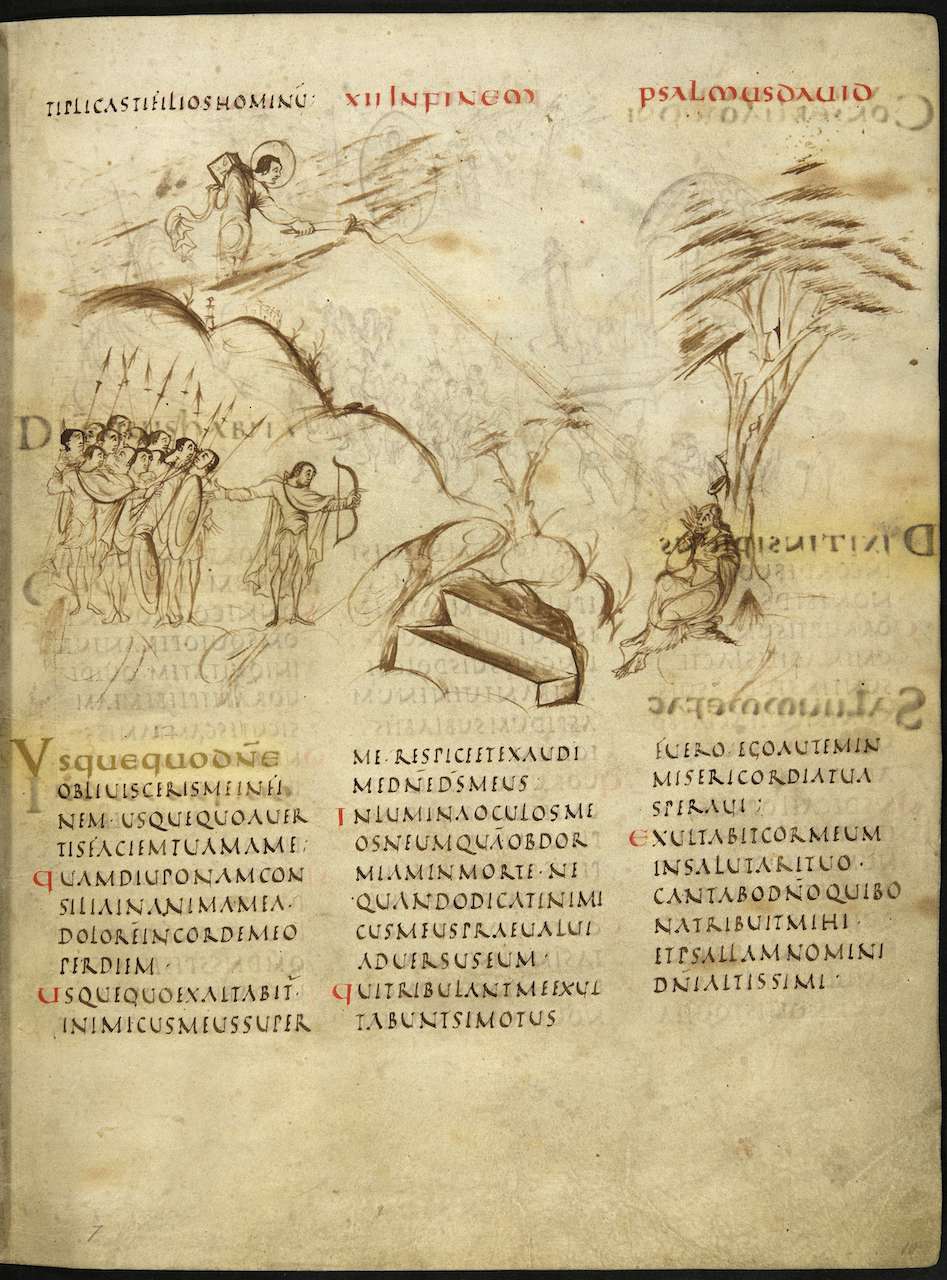 TIPLICASTIFILIOSHOMINŪ·
XII INFINEM
PSALMUSDAUID
VsquequoDN̄E
OBLIUISCERISMEINFI
NEM·USQUEQUOAUER
TISFACIEMTUAMAME;
QUAMDIUPONAMCON
SILIAINANIMAMEA·
DOLOREĪNCORDEMEO
PERDIEM·
USQUEQUOEXALTABIT·
INIMICUSMEUSSUPER
ME·RESPICEETEXAUDI
MEDN̄ED̄SMEUS·
INLUMINAOCULOSME
OSNEUMQUĀOBDOR
MIAMINMORTE·NE
QUANDODICATINIMI
CUSMEUSPRAEUALUI
ADUERSUSEUM·
QUITRIBULANTMEEXUL
TABUNTSIMOTUS
FUERO·EGOAUTEMIN
MISERICORDIATUA
SPERAUI;
EXULTABITCORMEUM
INSALUTARITUO·
CANTABODN̄OQUIBO
NATRIBUITMIHI·
ETPSALLAMNOMINI
DN̄IALTISSIMI·
7